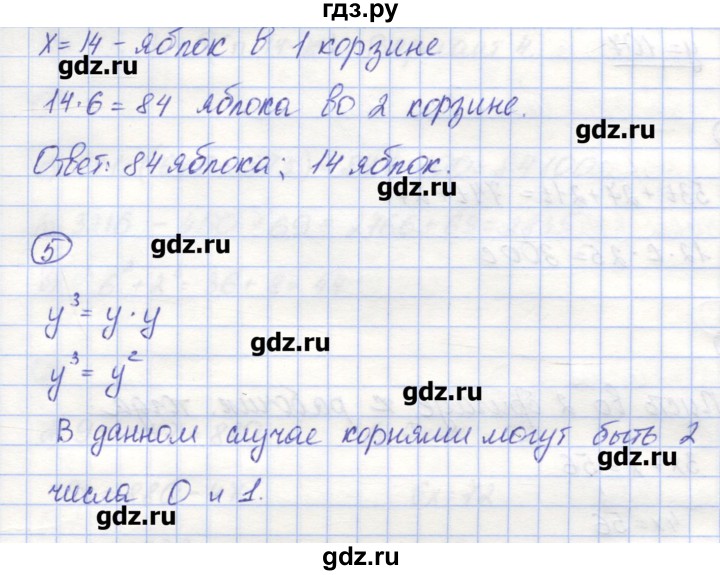 гдз.ру
x = 14 - яблок в 1 корзине
gdz.ru
14·6 = 84 яблока во 2 корзине.
gdz.ru
Ответ: 84 яблока; 14 яблок.
gdz.ru
5
gdz.ru
y³ = y · y
gdz.ru
y³ = y²
gdz.ru
В данном случае корнями могут быть 2
gdz.ru
числа 0 и 1.
gdz.ru
gdz.ru